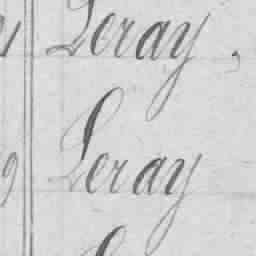 Leray,
Leray